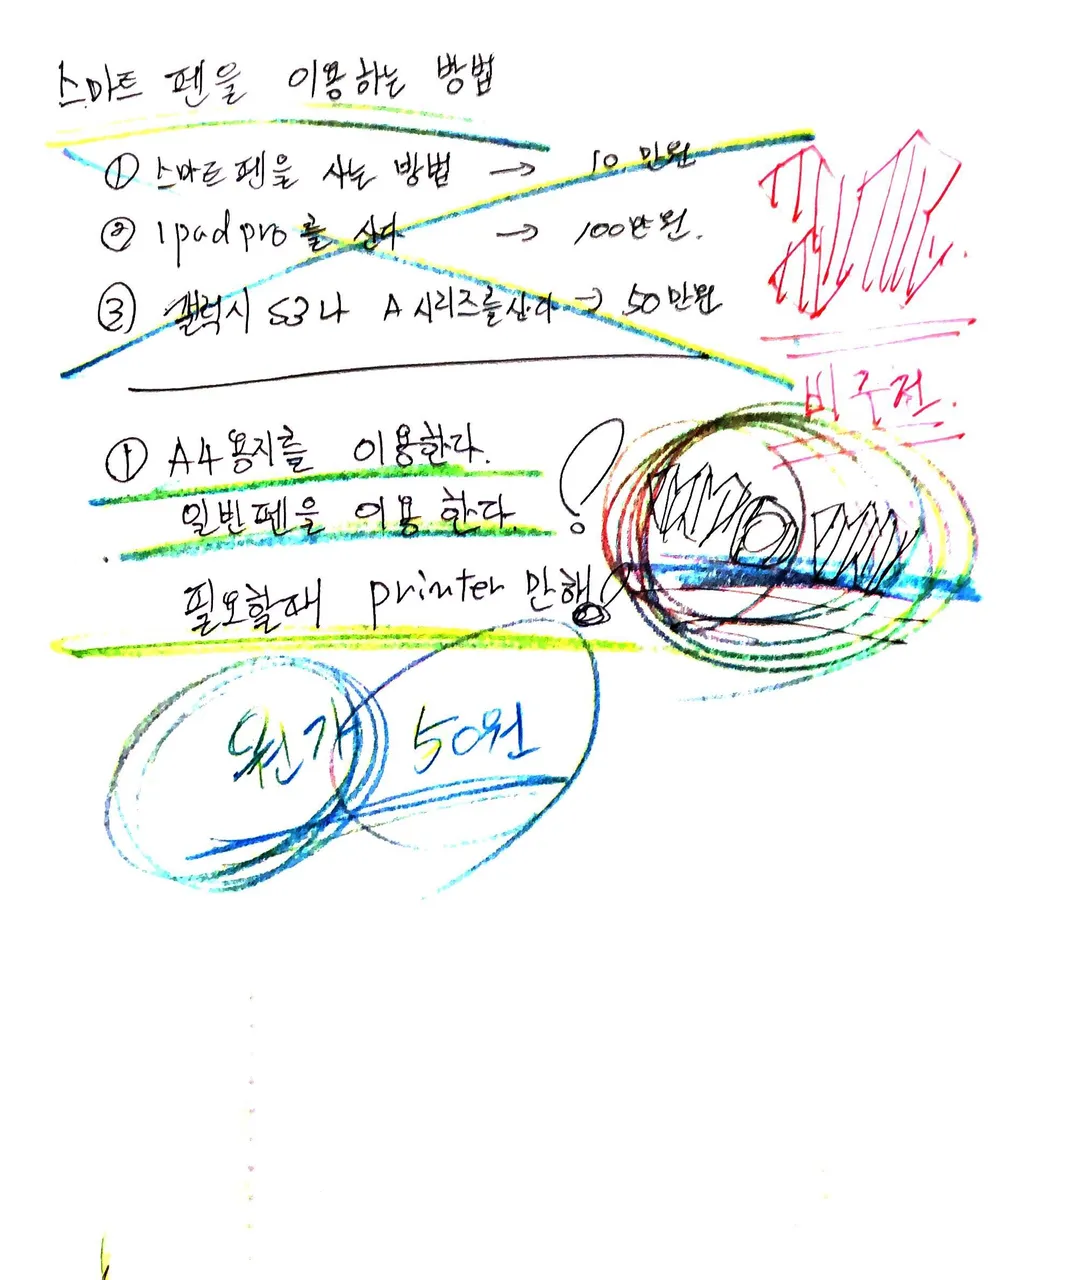 스마트 펜을 이용하는 방법
① 스마트펜을 사는 방법 → 10만원
② ipad pro를 산다 → 100만원.
③ 갤럭시 S3나 A시리즈를 산다 → 50만원
비추전.
① A4용지를 이용한다.
일반펜을 이용한다.
필요할때 printer 만해!
원가 50원